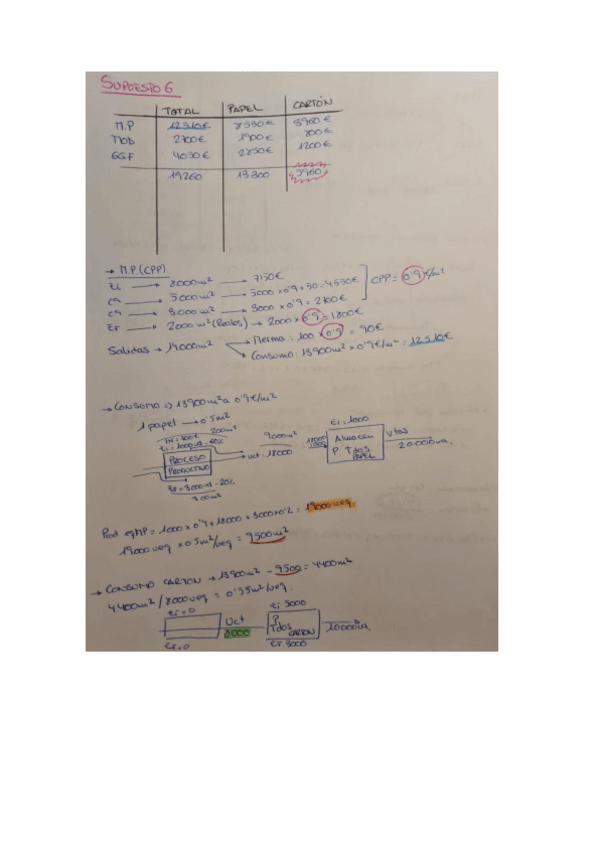 SUPUESTO 6
TOTAL PAPEL CARTÓN
M.P 12510€ 8550€ 3960€
MOD 2700€ 1900€ 800€
GGF 4050€ 2850€ 1200€
19260 13300 5960
→ M.P (CPP)
Ei → 8000m² → 7150€
Cª → 5000m² → 5000 x 0'9 + 50 = 4550€
Cª → 3000m² → 3000 x 0'9 = 2700€
CPP = 0'9€/m²
Ef → 2000m² (Reales) → 2000 x 0'9 = 1800€
Salidas → 14000m²
Merma: 100 x 0'9 = 90€
Consumo: 13900m² x 0'9€/m² = 12510€
→ Consumo => 13900m² a 0'9€/m²
1 papel → 0'5m²
200m²
9000m²
Ei = 1000
PROCESO
PRODUCTIVO
Uct: 18000
Almacen
P. Tdos
PAPEL
Vtas
20.000ua.
Prod eqMP = 1000 x 0'4 + 18000 + 3000 x 0'2 = 19000 ueq
19000 ueq x 0'5m²/ueq = 9500m²
→ CONSUMO CARTON → 13900m² - 9500 = 4400m²
4400m² / 8000ueq = 0'55m²/ueq.
Ei = 0
Uct
8000
Ef = 0
Ei 5000
P
Tdos
CARTON
Ef. 3000
10000ua.